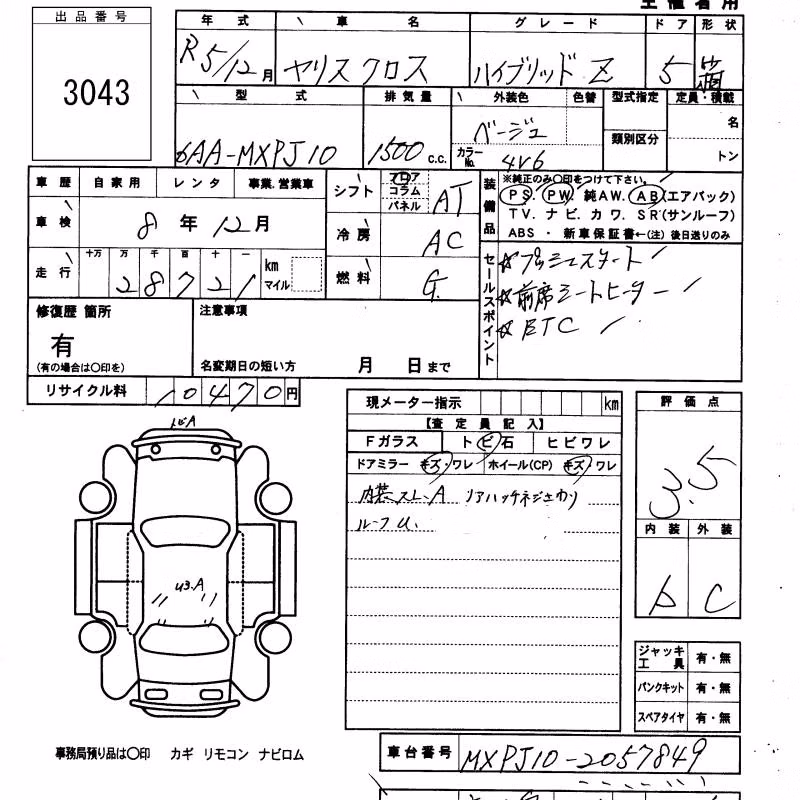 主催者用
出品番号
3043
年式 車名 グレード ドア 形状
R5/12月 ヤリスクロス ハイブリッド Z 5 箱
型式 排気量 外装色 色替 型式指定 定員・積載
6AA-MXPJ10 1500 c.c. ベージュ 類別区分 名
カラーNo. 4V6 トン
車歴 自家用 レンタ 事業.営業車
車検 8年12月
走行 十万 万 千 百 十 一 km マイル
28721
シフト フロア コラム パネル AT
冷房 AC
燃料 G
装備品
※純正のみ○印をつけて下さい。
PS. PW. 純AW. AB(エアバック)
TV. ナビ. カワ. SR(サンルーフ)
ABS ・ 新車保証書←(注) 後日送りのみ
セールスポイント
☆プッシュスタート
☆前席シートヒーター
☆ETC
修復歴 箇所 注意事項
有
(有の場合は○印を) 名変期日の短い方 月 日まで
リサイクル料 10470円
現メーター指示 km
【査定員記入】
Fガラス トビ石 ヒビワレ
ドアミラー キズ・ワレ ホイール(CP) キズ/ワレ
内装スレ.A リアハッチネジユガリ
ルーフU.
評価点
3.5
内装 外装
b C
トビA
U3.A
ジャッキ工具 有・無
パンクキット 有・無
スペアタイヤ 有・無
事務局預り品は○印 カギ リモコン ナビロム
車台番号 MXPJ10-2057849